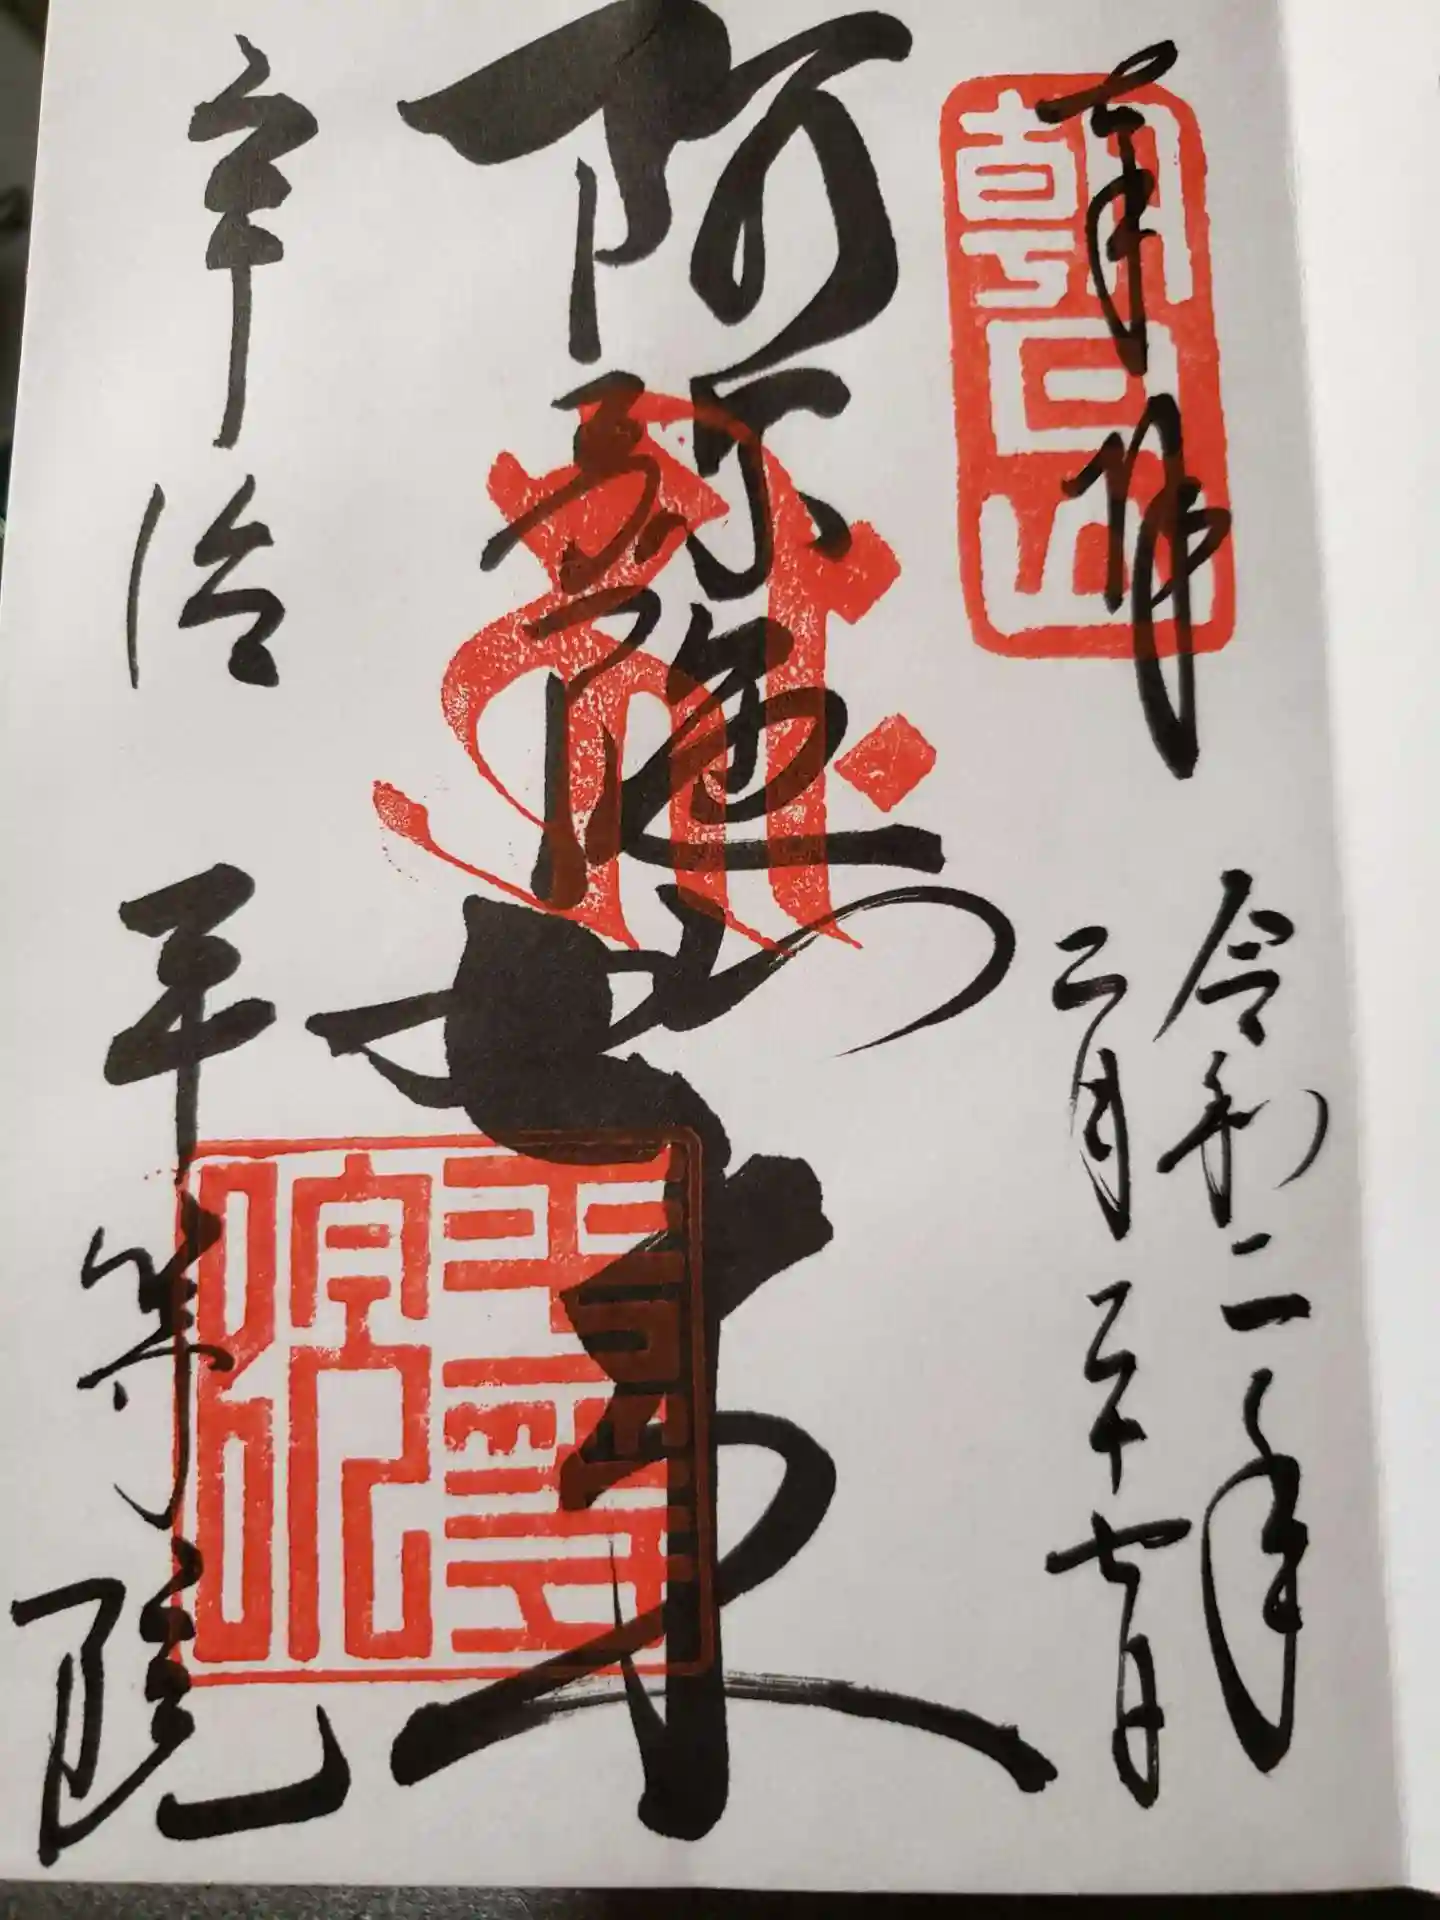 奉拝
朝日山
令和二年
二月二十七日
阿弥陀如来
平等院
宇治
平等院